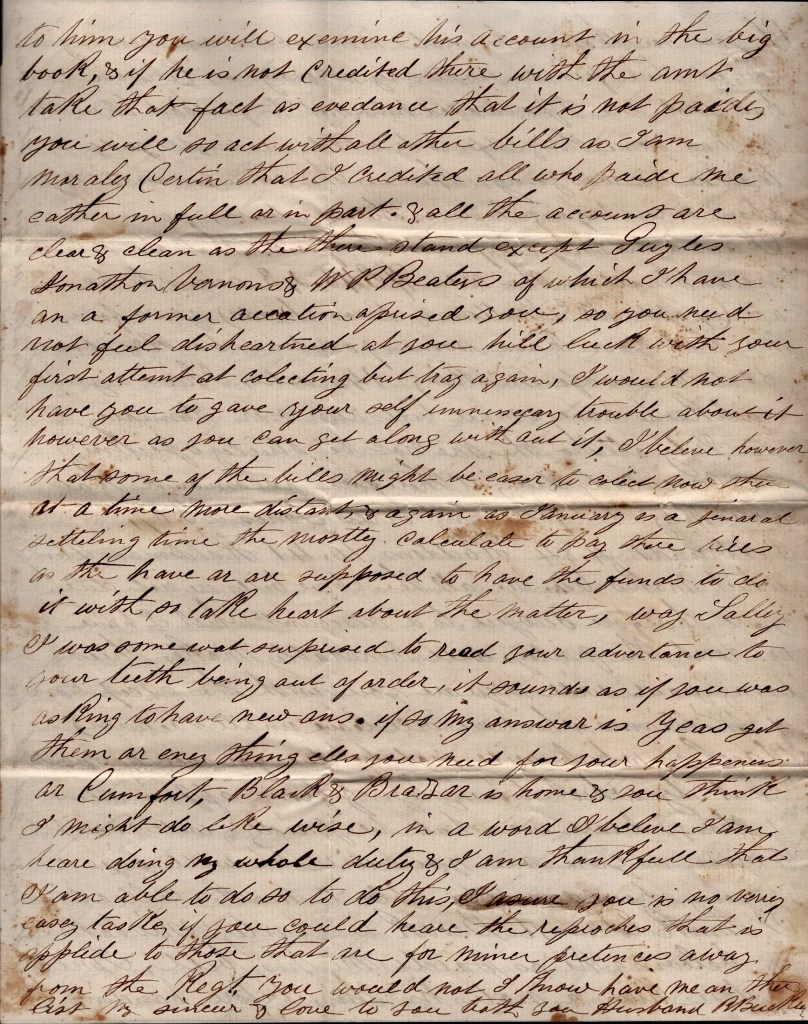 to him you will exemine his account in the big
book, & if he is not credited there with the amt
take that fact as evedance that it is not paide,
you will so act with all other bills as I am
moraley Certin that I credited all who paide me
eather in full or in part. & all the accounts are
clear & clean as the there stand except
Jonathon Vernons & W P Beaters of which I have
on a former accation aprised you, so you need
not feel disheartned at you hill luck with your
first attemt at colecting but tray again, I would not
have you to gave your self unnisecary trouble about it
however as you can get along with out it, I beleve however
that some of the bills might be easer to colect now then
at a time more distant, & again as January is a jinaral
setteling time the mostley calculate to pay there bills
as the have or are supposed to have the funds to do
it with so take heart about the matter, way Salley
I was some wat surprised to read your advertance to
your teeth being out of order, it sounds as if you was
asking to have new ons. if so my answar is yeas get
them or eney thing ells you need for your happeness
or Cumfort, Black & is home & you think
I might do like wise, in a word I beleve I am
heare doing my whole duty & I am thankfull that
I am able to do so to do this, I asure you is no verry
easey taske, if you could heare the reproches that is
applide to those that are for miner pretences away
from the Regt. you would not I know have me on the
list my sincer & love to you both you Husband